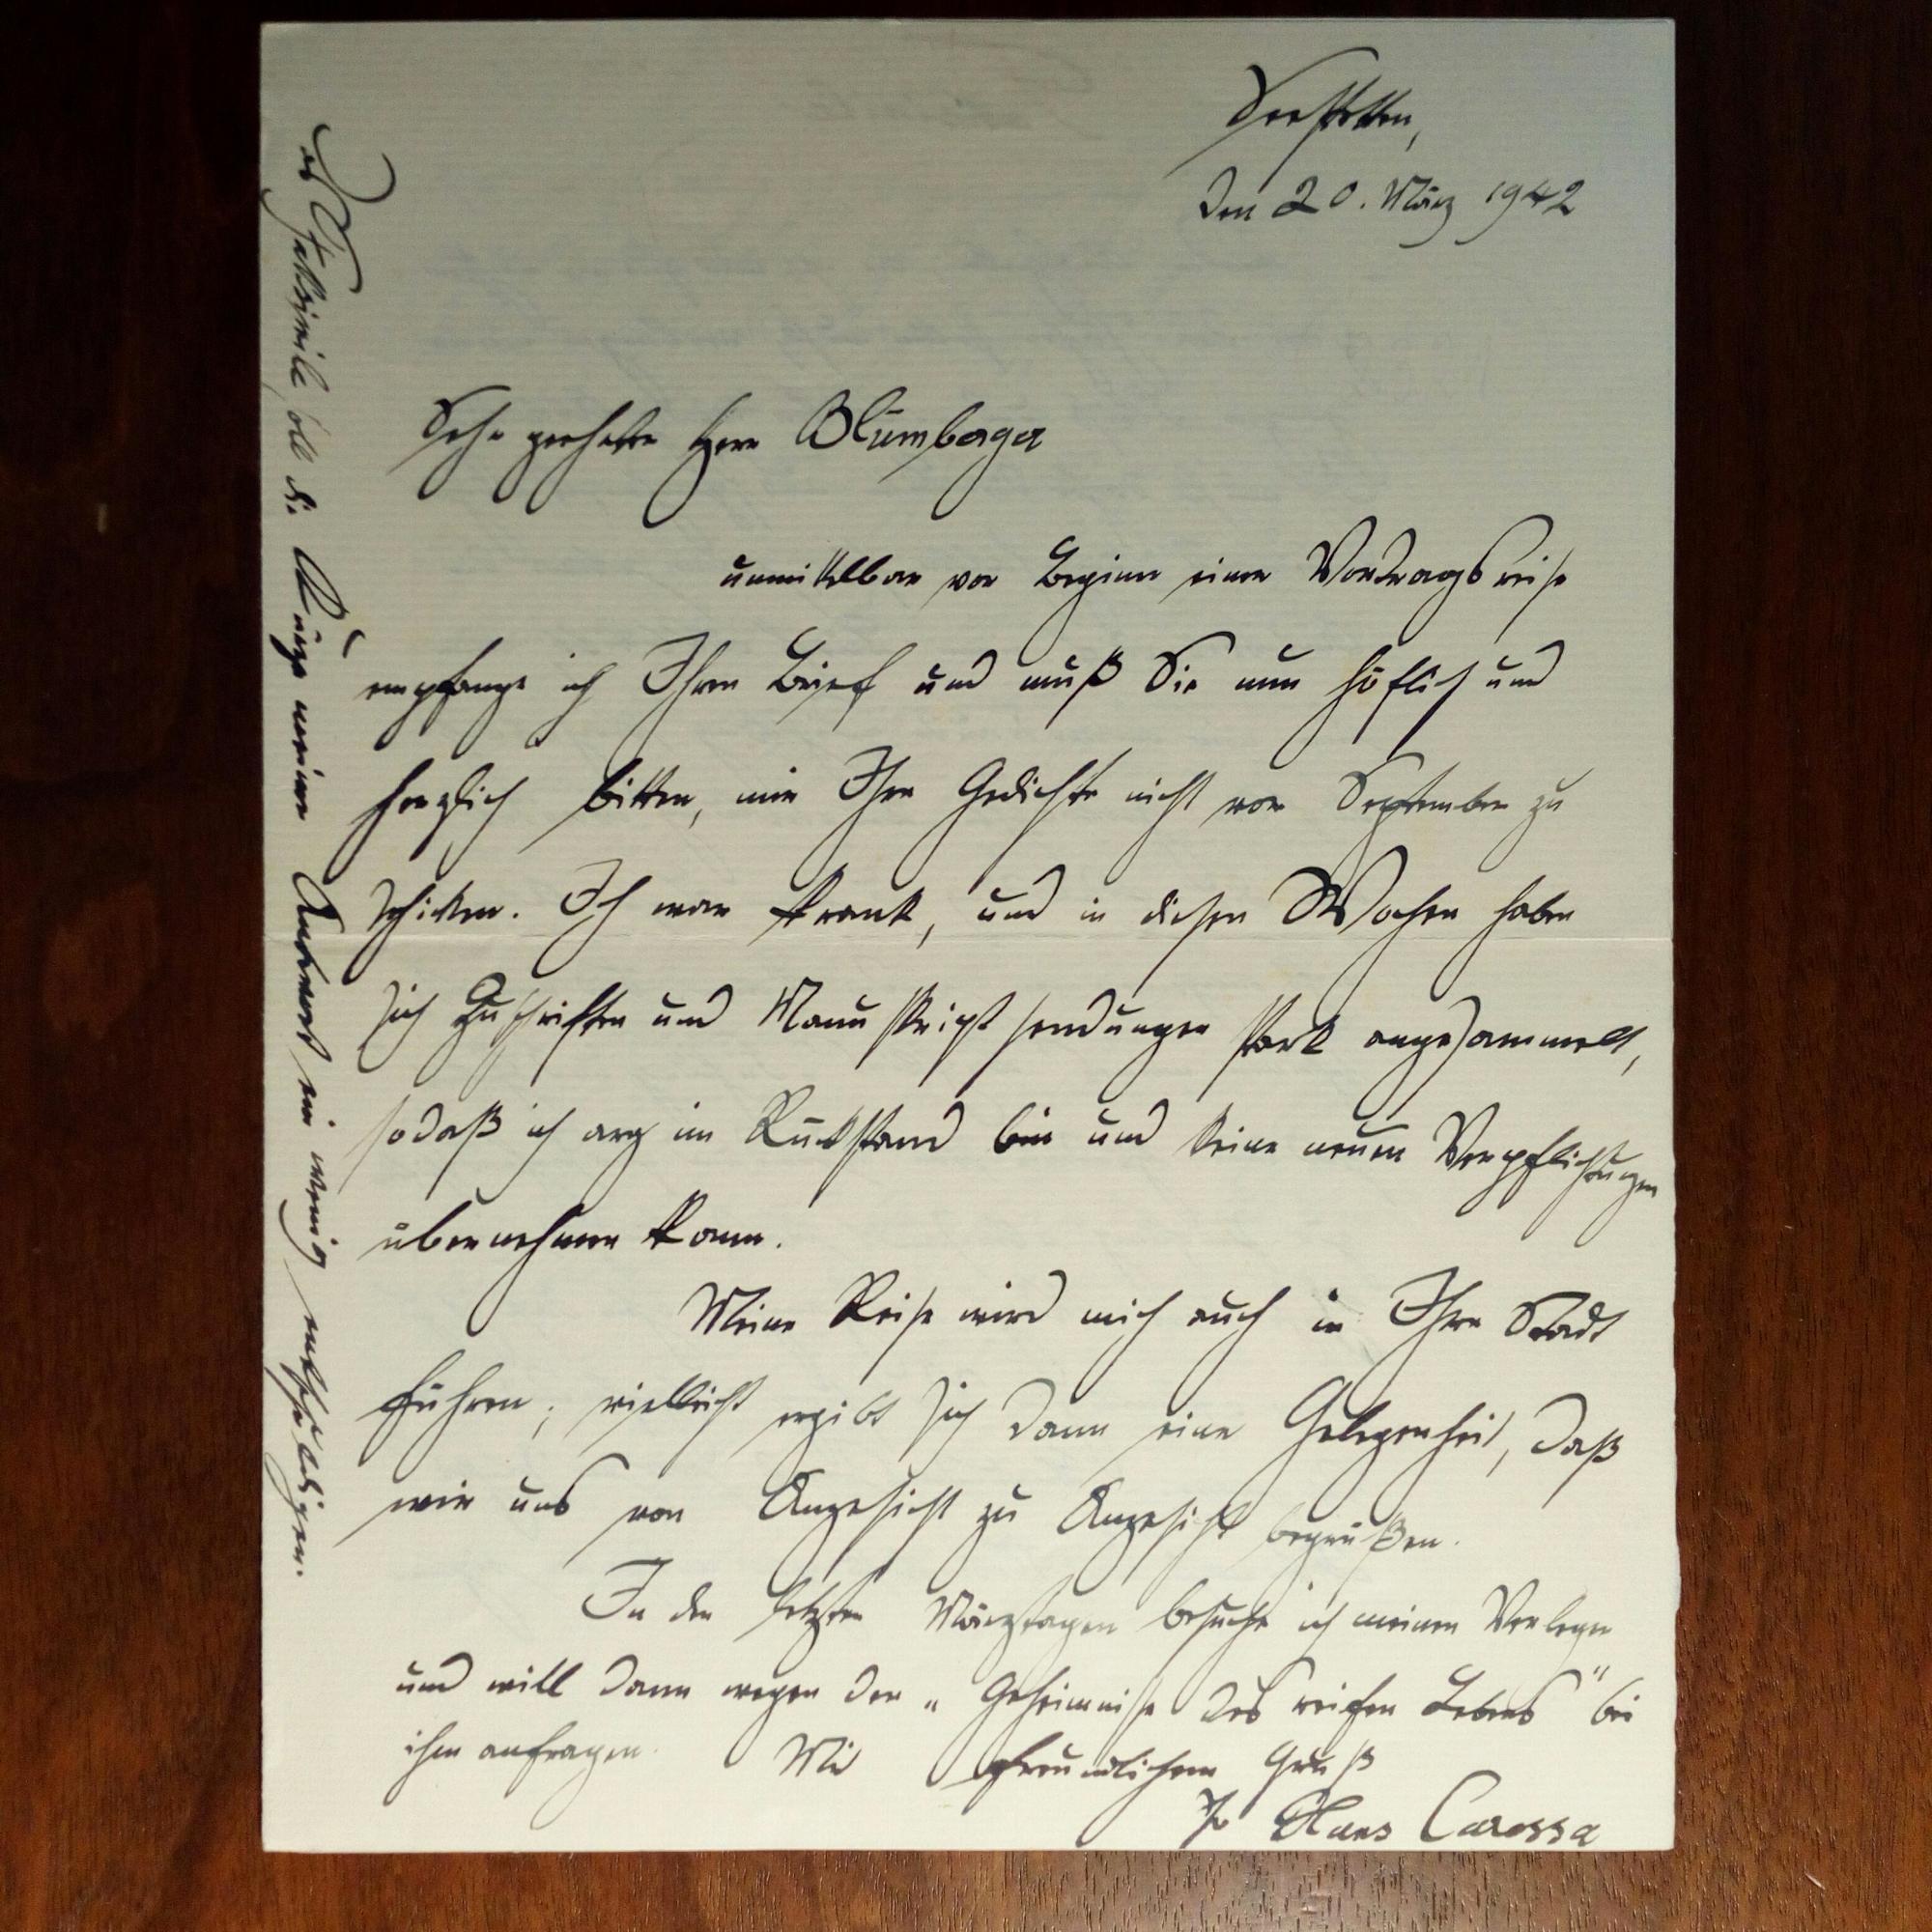 Seestetten,
den 20. März 1942
Sehr geehrter Herr Blumberger
unmittelbar vor Beginn einer Vortragsreise
empfange ich Ihren Brief und muß Sie nun höflich und
herzlich bitten, mir Ihre Gedichte nicht vor September zu
schicken. Ich war krank, und in diesen Wochen haben
sich Zuschriften und Manuskriptsendungen stark angesammelt,
sodaß ich arg im Rückstand bin und keine neuen Verpflichtungen
übernehmen kann.
Meine Reise wird mich auch in Ihre Stadt
führen; vielleicht ergibt sich dann eine Gelegenheit, daß
wir uns von Angesicht zu Angesicht begrüßen.
In den letzten Märztagen besuche ich meinen Verleger
und will dann wegen der „Geheimnisse des reifen Lebens" bei
ihm anfragen. Mit freundlichem Gruß
Ihr Hans Carossa
Das Faksimile soll die Kürze meiner Antwort ein wenig entschuldigen.